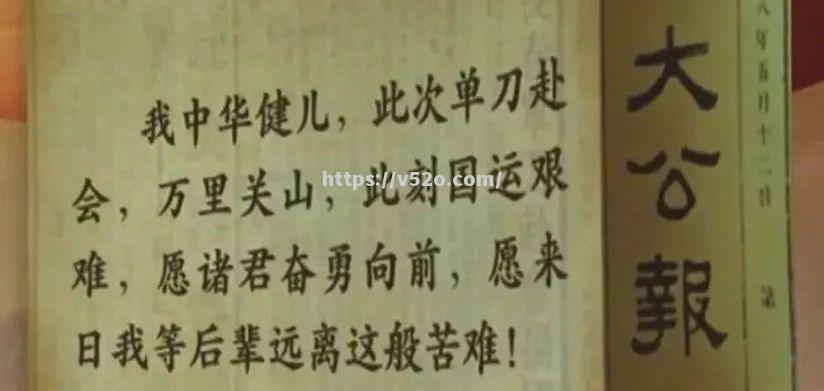 我中华健儿，此次单刀赴
会，万里关山，此刻国运艰
难，愿诸君奋勇向前，愿来
日我等后辈远离这般苦难！
https://v52o.com/
大公報
八年五月十二日 第